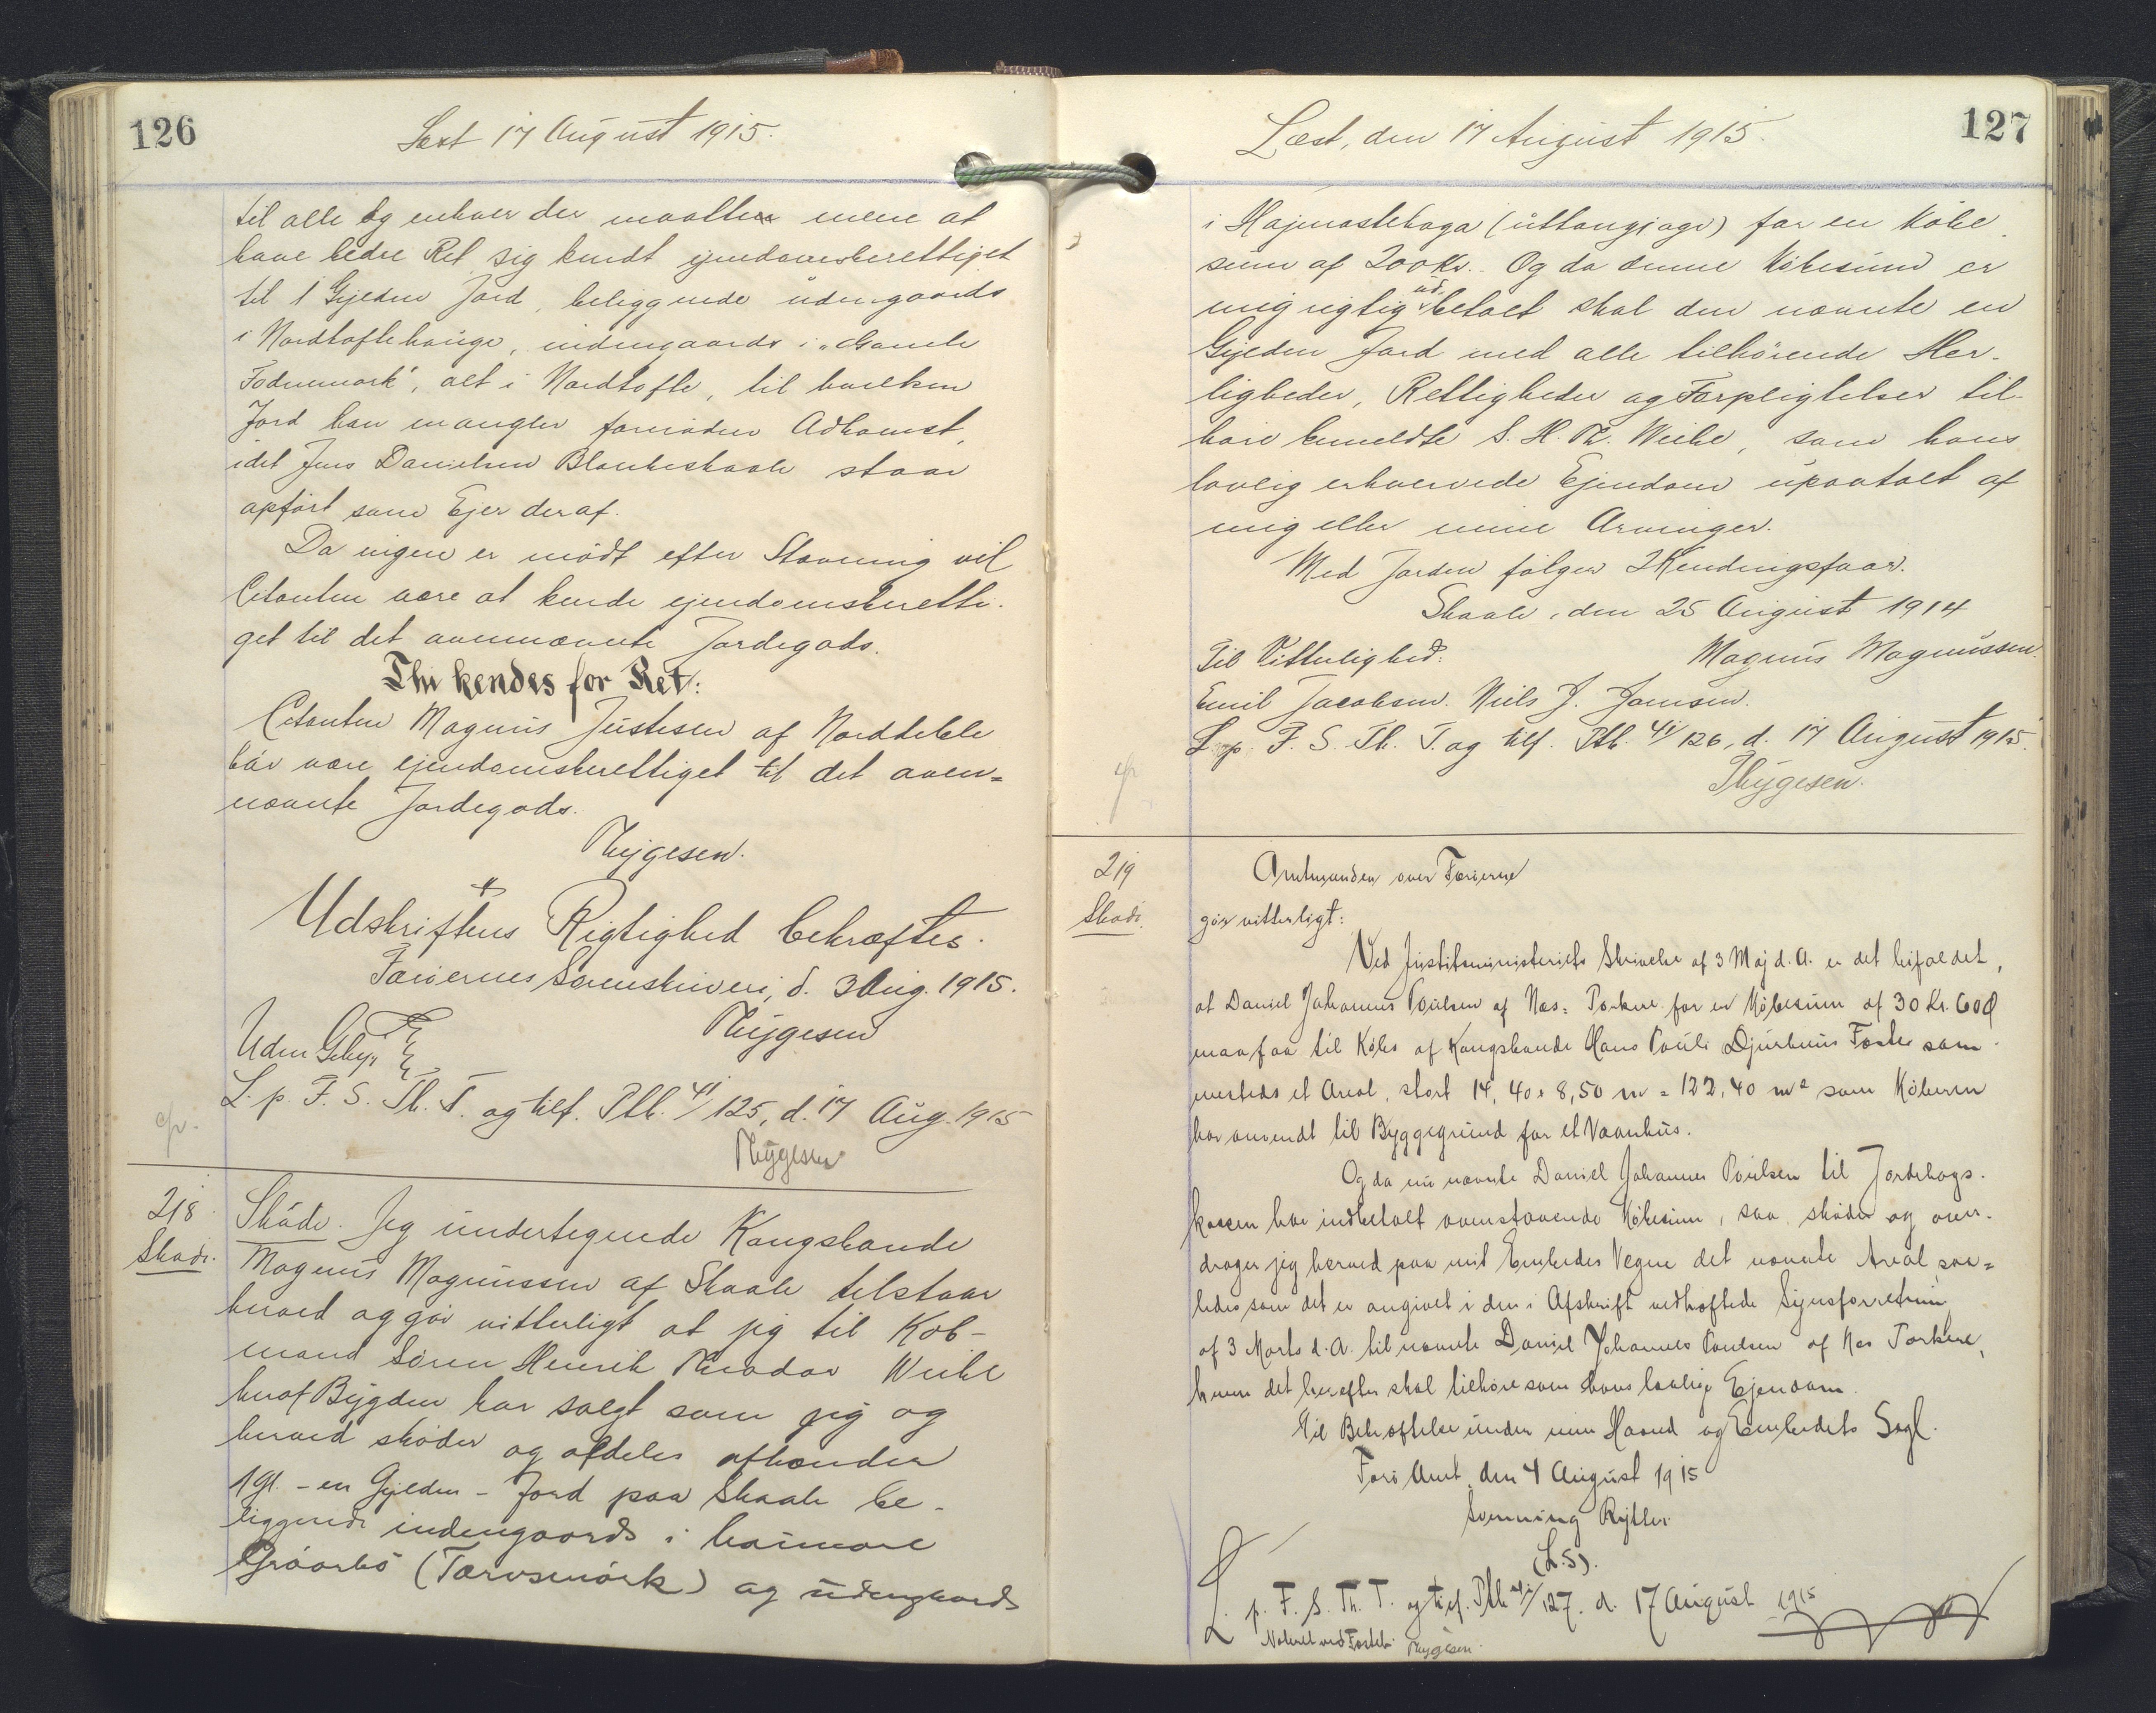 126
Læst 17 August 1915.
til alle og enhver der maatte mene at
have bedre Ret sig kendt ejendomsberettiget
til 1 Gylden Jord, beliggende udengaards
i Nordtoftehauge, indengaards i "Gamle
Fodnmark", alt i Nordtofte, til hvilken
Jord han mangler fornöden Adkomst,
idet Jens Danielsen Blankeskaale staar
opfört som Ejer deraf.
Da ingen er mödt efter Stævning vil
Citanten være at kende ejendomsberetti-
get til det ovennævnte Jordegods.
Thi kendes for Ret:
Citanten Magnus Justesen af Nordteble
bör være ejendomsberettiget til det oven=
nævnte Jordegods.
Thygesen.
Udskriftens Rigtighed bekræftes.
Færöernes Sorenskriveri, d. 3 Aug. 1915.
Thygesen
Uden Gebyr
L. p. F. S. Th. T. og tilf. Ptb. 41/125, d. 17 Aug. 1915
Thygesen
cfr.
218.
Sköde.
Sköde. Jeg undertegnede Kongsbonde
Magnus Magnussen af Skaale tilstaar
herved og gör vitterligt at jeg til Köb-
mand Sören Henrik Theodor Weihe
heraf Bygden har solgt som jeg og
herved sköder og aldeles afhænder
1 Gl. - en Gylden - Jord paa Skaale be-
liggende indengaards i haimare
Gróarbö (Tarvsmörk) og udengaards
127
Læst, den 17 August 1915.
i Hajmastehaga (úttangjagv) for en Köbe
sum af 200 Kr. Og da denne Köbesum er
mig rigtig ud betalt skal den nævnte en
Gylden Jord med alle tilhörende Her-
ligheder, Rettigheder og Forpligtelser til-
höre bemeldte S. H. Th. Weihe, som hans
lovlig erhvervede Ejendom upaatalt af
mig eller mine Arvinger.
Med Jorden fölger 2 Kendingsfaar.
Skaale, den 25 August 1914
Til Vitterlighed: Magnus Magnussen.
Emil Jacobsen. Niels J. Jansen.
L. p. F. S. Th. T. og tilf. Ptb. 41/126, d. 17 August 1915.
Thygesen.
cfr
219
Sköde.
Amtmanden over Færöerne
gör vitterligt:
Ved Justitsministeriets Skrivelse af 3 Maj d. A. er det bifaldet,
at Daniel Johannes Poulsen af Næs = Porkere for en Köbesum af 30 Kr. 60 Ø
maa faa til Köbs af Kongsbonde Hans Pauli Djurhuus Fæste sam-
mesteds et Areal, stort 14,40 x 8,50 m = 122,40 m² som Köberen
har anvendt til Byggegrund for et Vaanhus.
Og da nu nævnte Daniel Johannes Poulsen til Jordebogs-
kassen har indbetalt ovenstaaende Köbesum, saa sköder og over-
drager jeg herved paa mit Embedes Vegne det nævnte Areal saa=
ledes som det er angivet i den i Afskrift vedhæftede Synsforretning
af 3 Marts d. A. til nævnte Daniel Johannes Poulsen af Næs Porkere,
hvem det herefter skal tilhöre som hans lovlige Ejendom.
Til Bekræftelse under min Haand og Embedets Segl.
Færö Amt, den 4 August 1915
Svenning Rytter
(L.S).
L. p. F. S. Th. T. og tilf. Ptb 41/127. d. 17 August 1915
Noteret ved Fæstet. Thygesen.